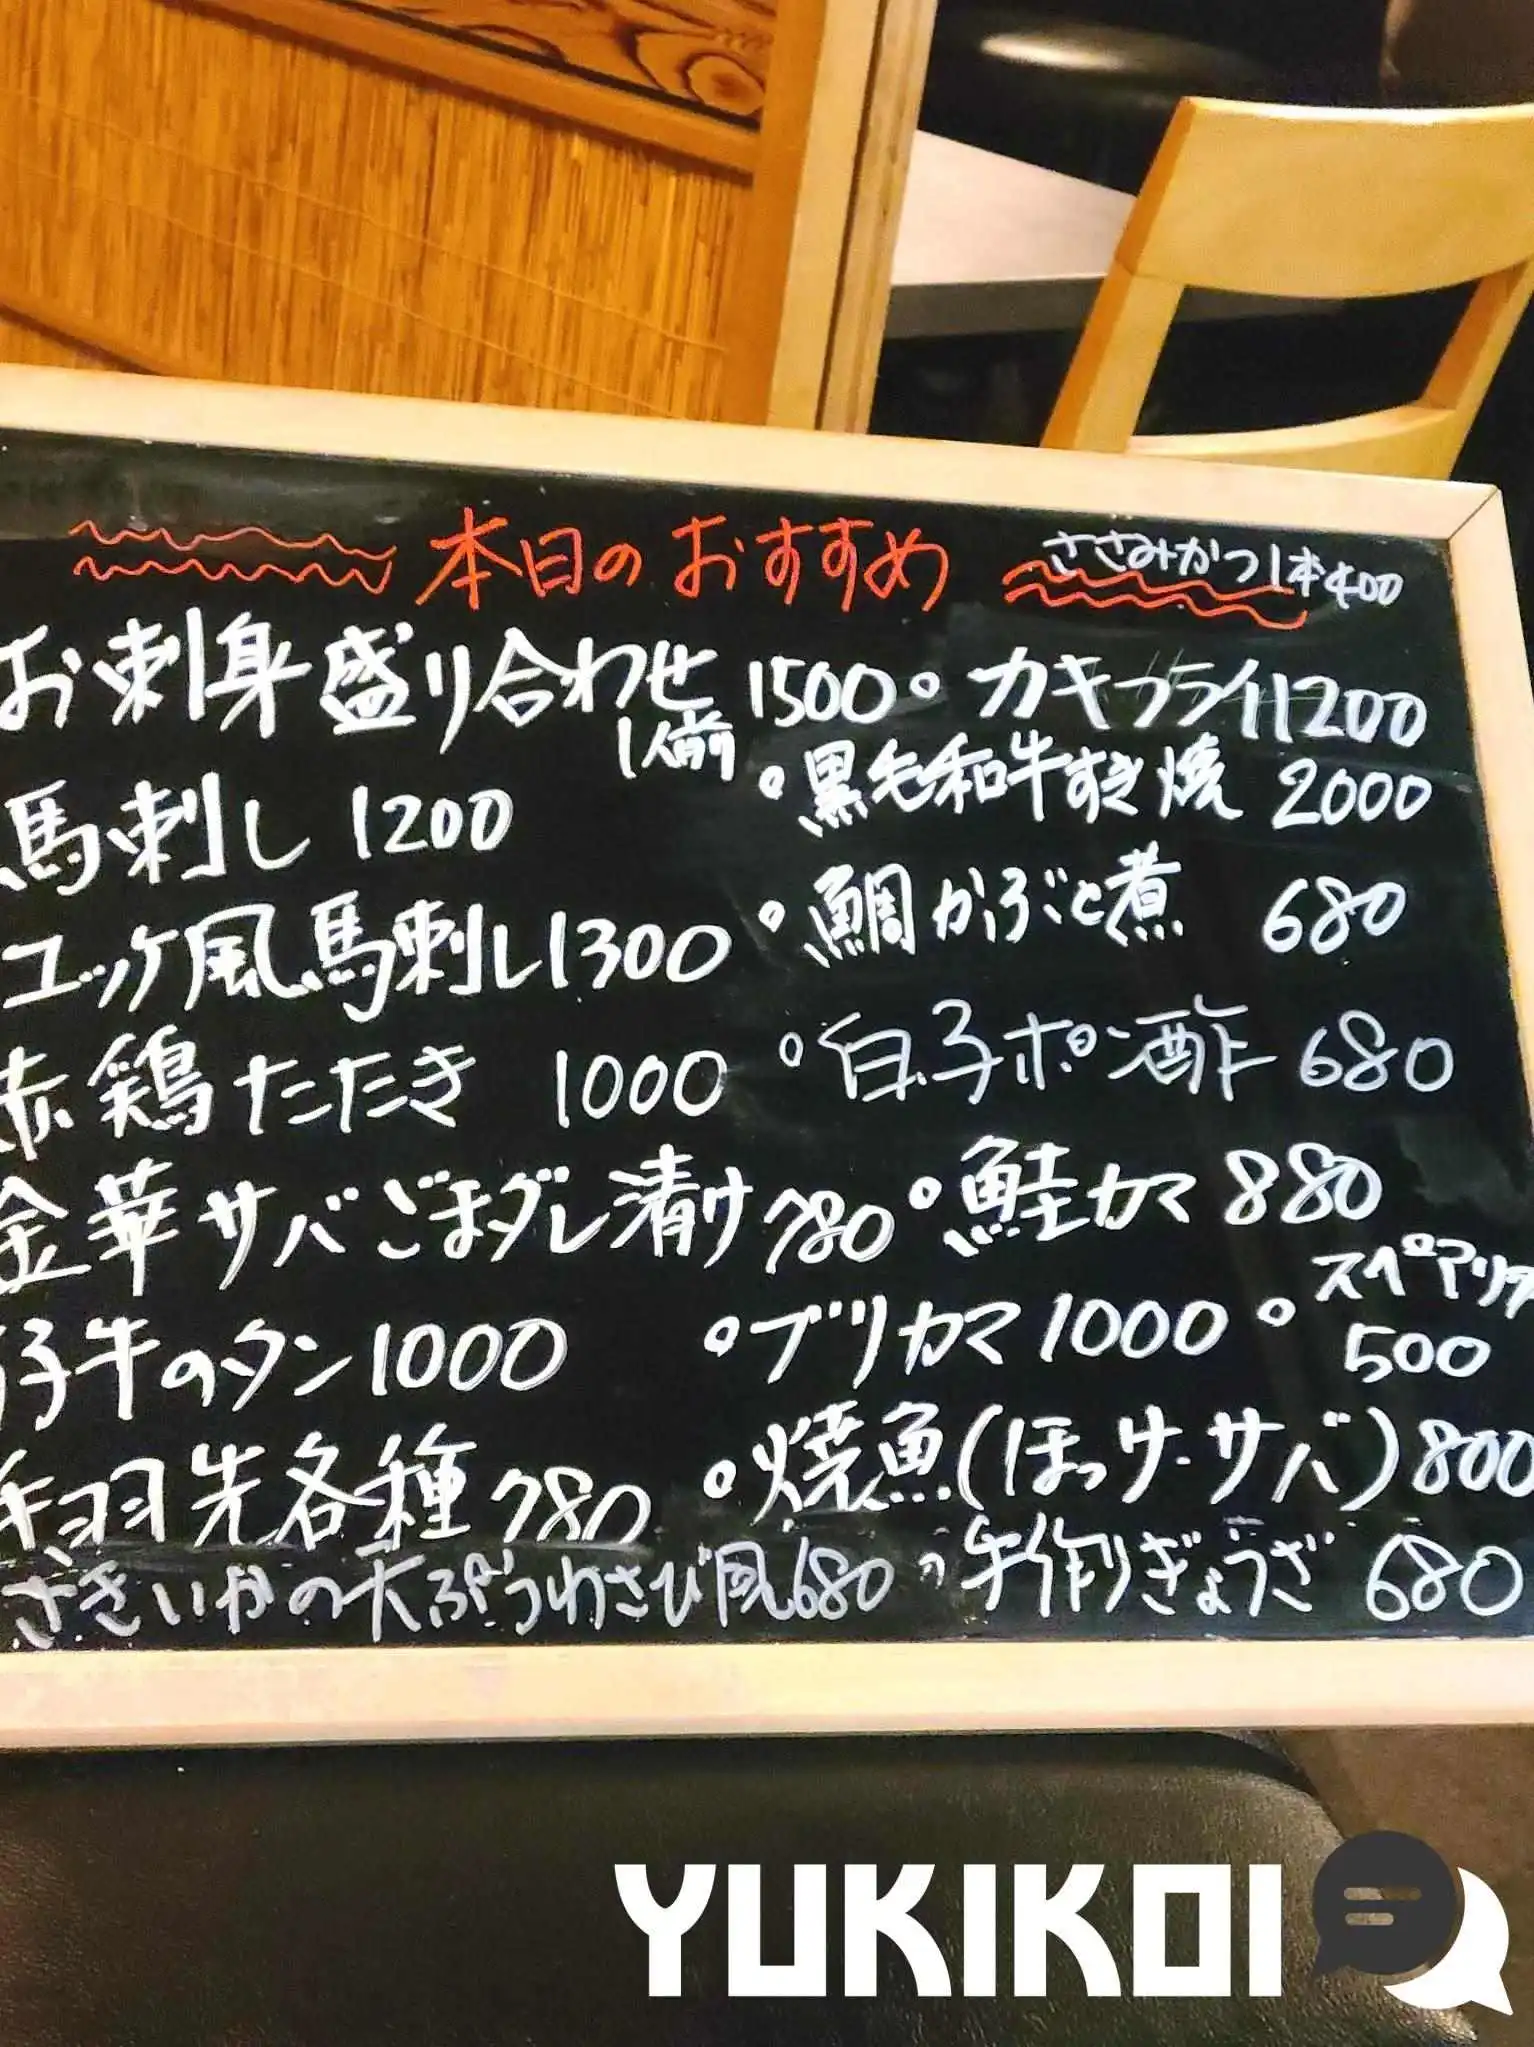 本日のおすすめ
ささみかつ1本400
お刺身盛り合わせ 1500
1人前
馬刺し 1200
ユッケ風馬刺し 1300
赤鶏たたき 1000
金華サバごまダレ漬け 780
仔牛のタン 1000
手羽先各種 780
さきいかの天ぷらわさび風 680
。カキフライ 1200
。黒毛和牛すき焼 2000
。鯛かぶと煮 680
。白子ポン酢 680
。鮭カマ 880
。ブリカマ 1000
。スペアリブ
500
。焼魚(ほっけ・サバ) 800
。手作りぎょうざ 680
YUKIKOI